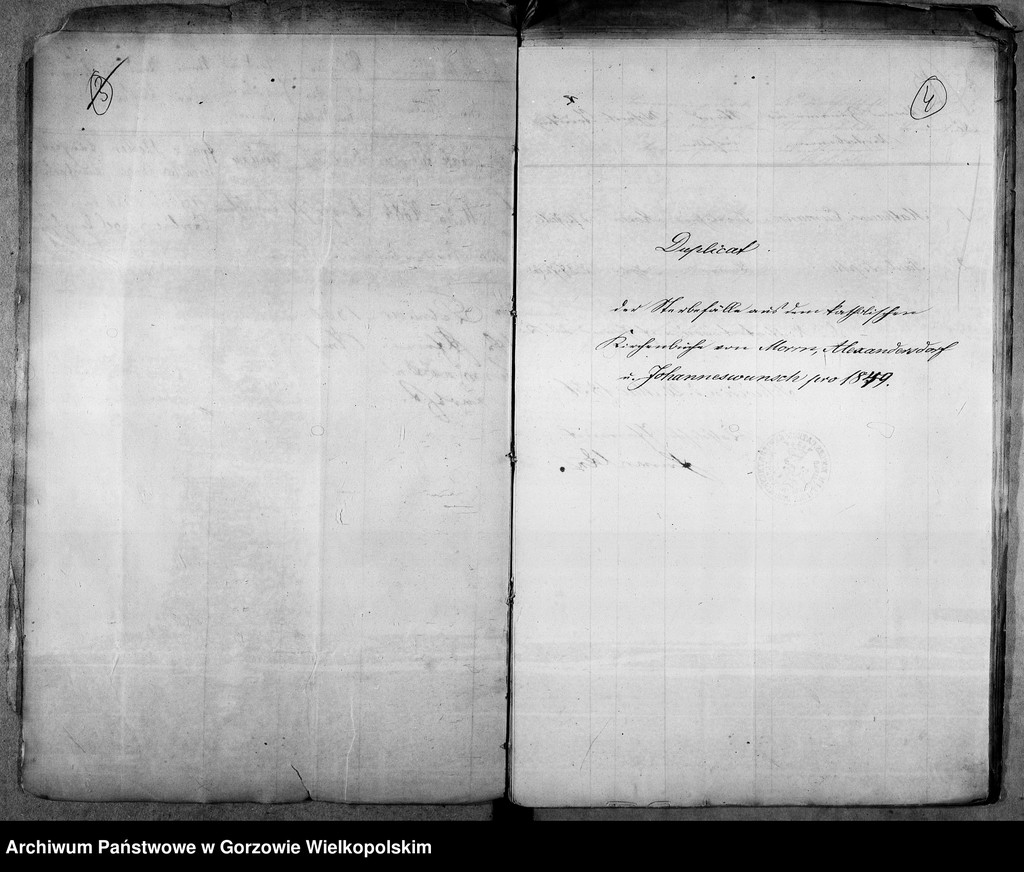 3
4
Duplicat.
der Sterbefälle aus dem katholischen
Kirchenbuche von Morrn, Alexandersdorf
u. Johanneswunsch pro 1849.
Archiwum Państwowe w Gorzowie Wielkopolskim